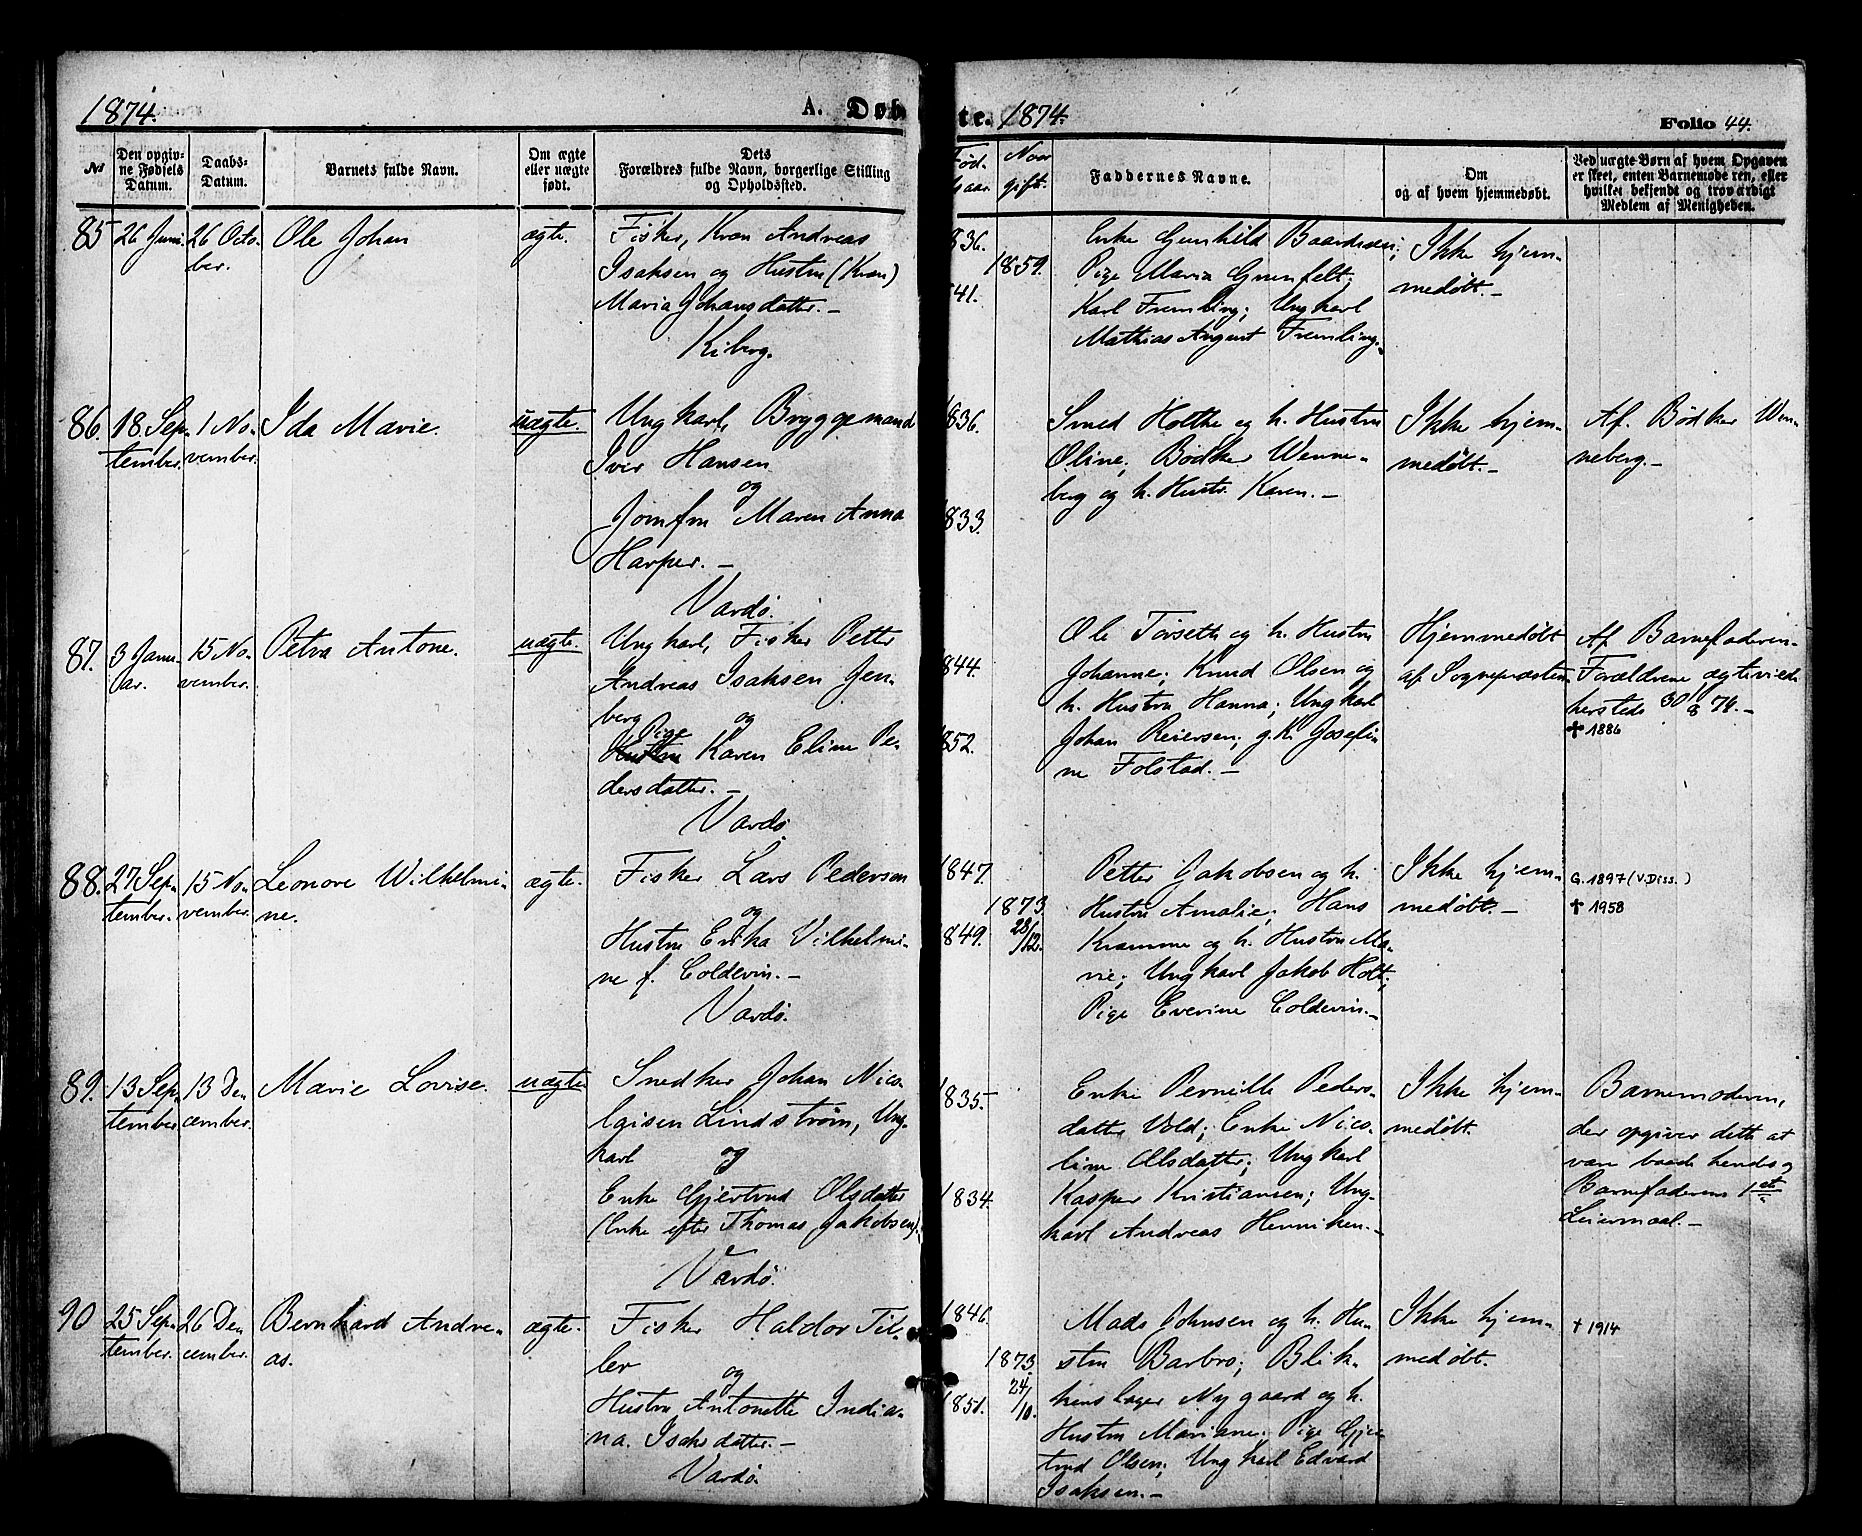 1874.
A. Døb
te. 1874.
Folio 44.
№
Den opgiv-
ne Fødsels
Datum.
Daabs-
Datum.
Barnets fulde Navn.
Om ægte
eller uægte
født.
Dets
Forældres fulde Navn, borgerlige Stilling
og Opholdssted.
Fød.
aar.
Naar
gift.
Faddernes Navne.
Om
og af hvem hjemmedøbt.
Ved uægte Børn af hvem Opgaven
er skeet, enten Barnemoderen, eller
hvilket bekjendt og troværdigt
Medlem af Menigheden.
85
26 Juni
26 Octo-
ber.
Ole Johan
ægte.
Fisker, Kvæn Andreas
Isaksen og Hustru (Kvæn)
Maria Johansdatter. –
Kiberg.
836.
41.
1859.
Enke Gunhild Baardsen;
Pige Maria Grunfelt;
Karl Fremling; Ungkarl
Mathias August Fremling.
Ikke hjem-
medøbt. –
86.
18 Sep-
tember.
1 No-
vember.
Ida Marie.
uægte.
Ungkarl, Bryggemand
Iver Hansen
og
Jomfru Maren Anna
Harper. –
Vardø.
836.
833.
Smed Holthe og h. Hustru
Oline; Bødker Wenne-
berg og h. Hustr. Karen. –
Ikke hjem-
medøbt. –
Af Bødker Wen-
neberg. –
87.
3 Janu-
ar.
15 No-
vember.
Petra Antone.
uægte.
Ungkarl, Fisker Petter
Andreas Isaksen Jen-
berg og
Pige
Hustru Karen Eline Pe-
dersdatter. –
Vardø.
844.
852.
Ole Torseth og h. Hustru
Johanne; Knud Olsen og
h. Hustru Hanna; Ungkarl
Johan Reiersen; g. K. Josefi-
ne Folstad. –
Hjemmedøbt
af Sognepræsten
Af Barnefaderen
Forældrene ægteviede
hersteds 30/8 74. –
✝ 1886
88.
27 Sep-
tember.
15 No-
vember.
Leonore Wilhelmi-
ne.
ægte.
Fisker Lars Pedersen
og
Hustru Erika Vilhelmi-
ne f. Coldevin. –
Vardø.
1847.
849.
1873
28/12.
Petter Jakobsen og h.
Hustru Amalie; Hans
Kramme og h. Hustru Ma-
rie; Ungkarl Jakob Holt;
Pige Everine Coldevin. –
Ikke hjem-
medøbt. –
G. 1897 (v. Diss.)
✝ 1958
89.
13 Sep-
tember
13 De-
cember.
Marie Lovise.
uægte
Snedker Johan Nico-
lgisen Lindstrøm, Ung-
karl og
Enke Gjertrud Olsdatter
(Enke efter Thomas Jakobsen).
Vardø.
835.
1834.
Enke Pernille Peders-
datter Vold; Enke Nico-
line Olsdatter; Ungkarl
Kasper Kristiansen; Ung-
karl Andreas Henriksen. –
Ikke hjem-
medøbt.
Barnemoderen,
der opgiver dette at
være baade hendes og
Barnefaderens 1ste
Leiermaal. –
90
25 Sep-
tember.
26 De-
cember.
Bernhard Andre-
as.
ægte.
Fisker Haldor Til-
ler
og
Hustru Antonette India-
na Isaksdatter. –
Vardø.
1846.
1851.
1873.
24/10.
Mads Johnsen og h. Hu-
stru Barbro; Blik-
kenslager Nygaard og h.
Hustru Mariane; Pige Gjer-
trud Olsen; Ungkarl Edvard
Isaksen. –
Ikke hjem-
medøbt.
✝ 1914